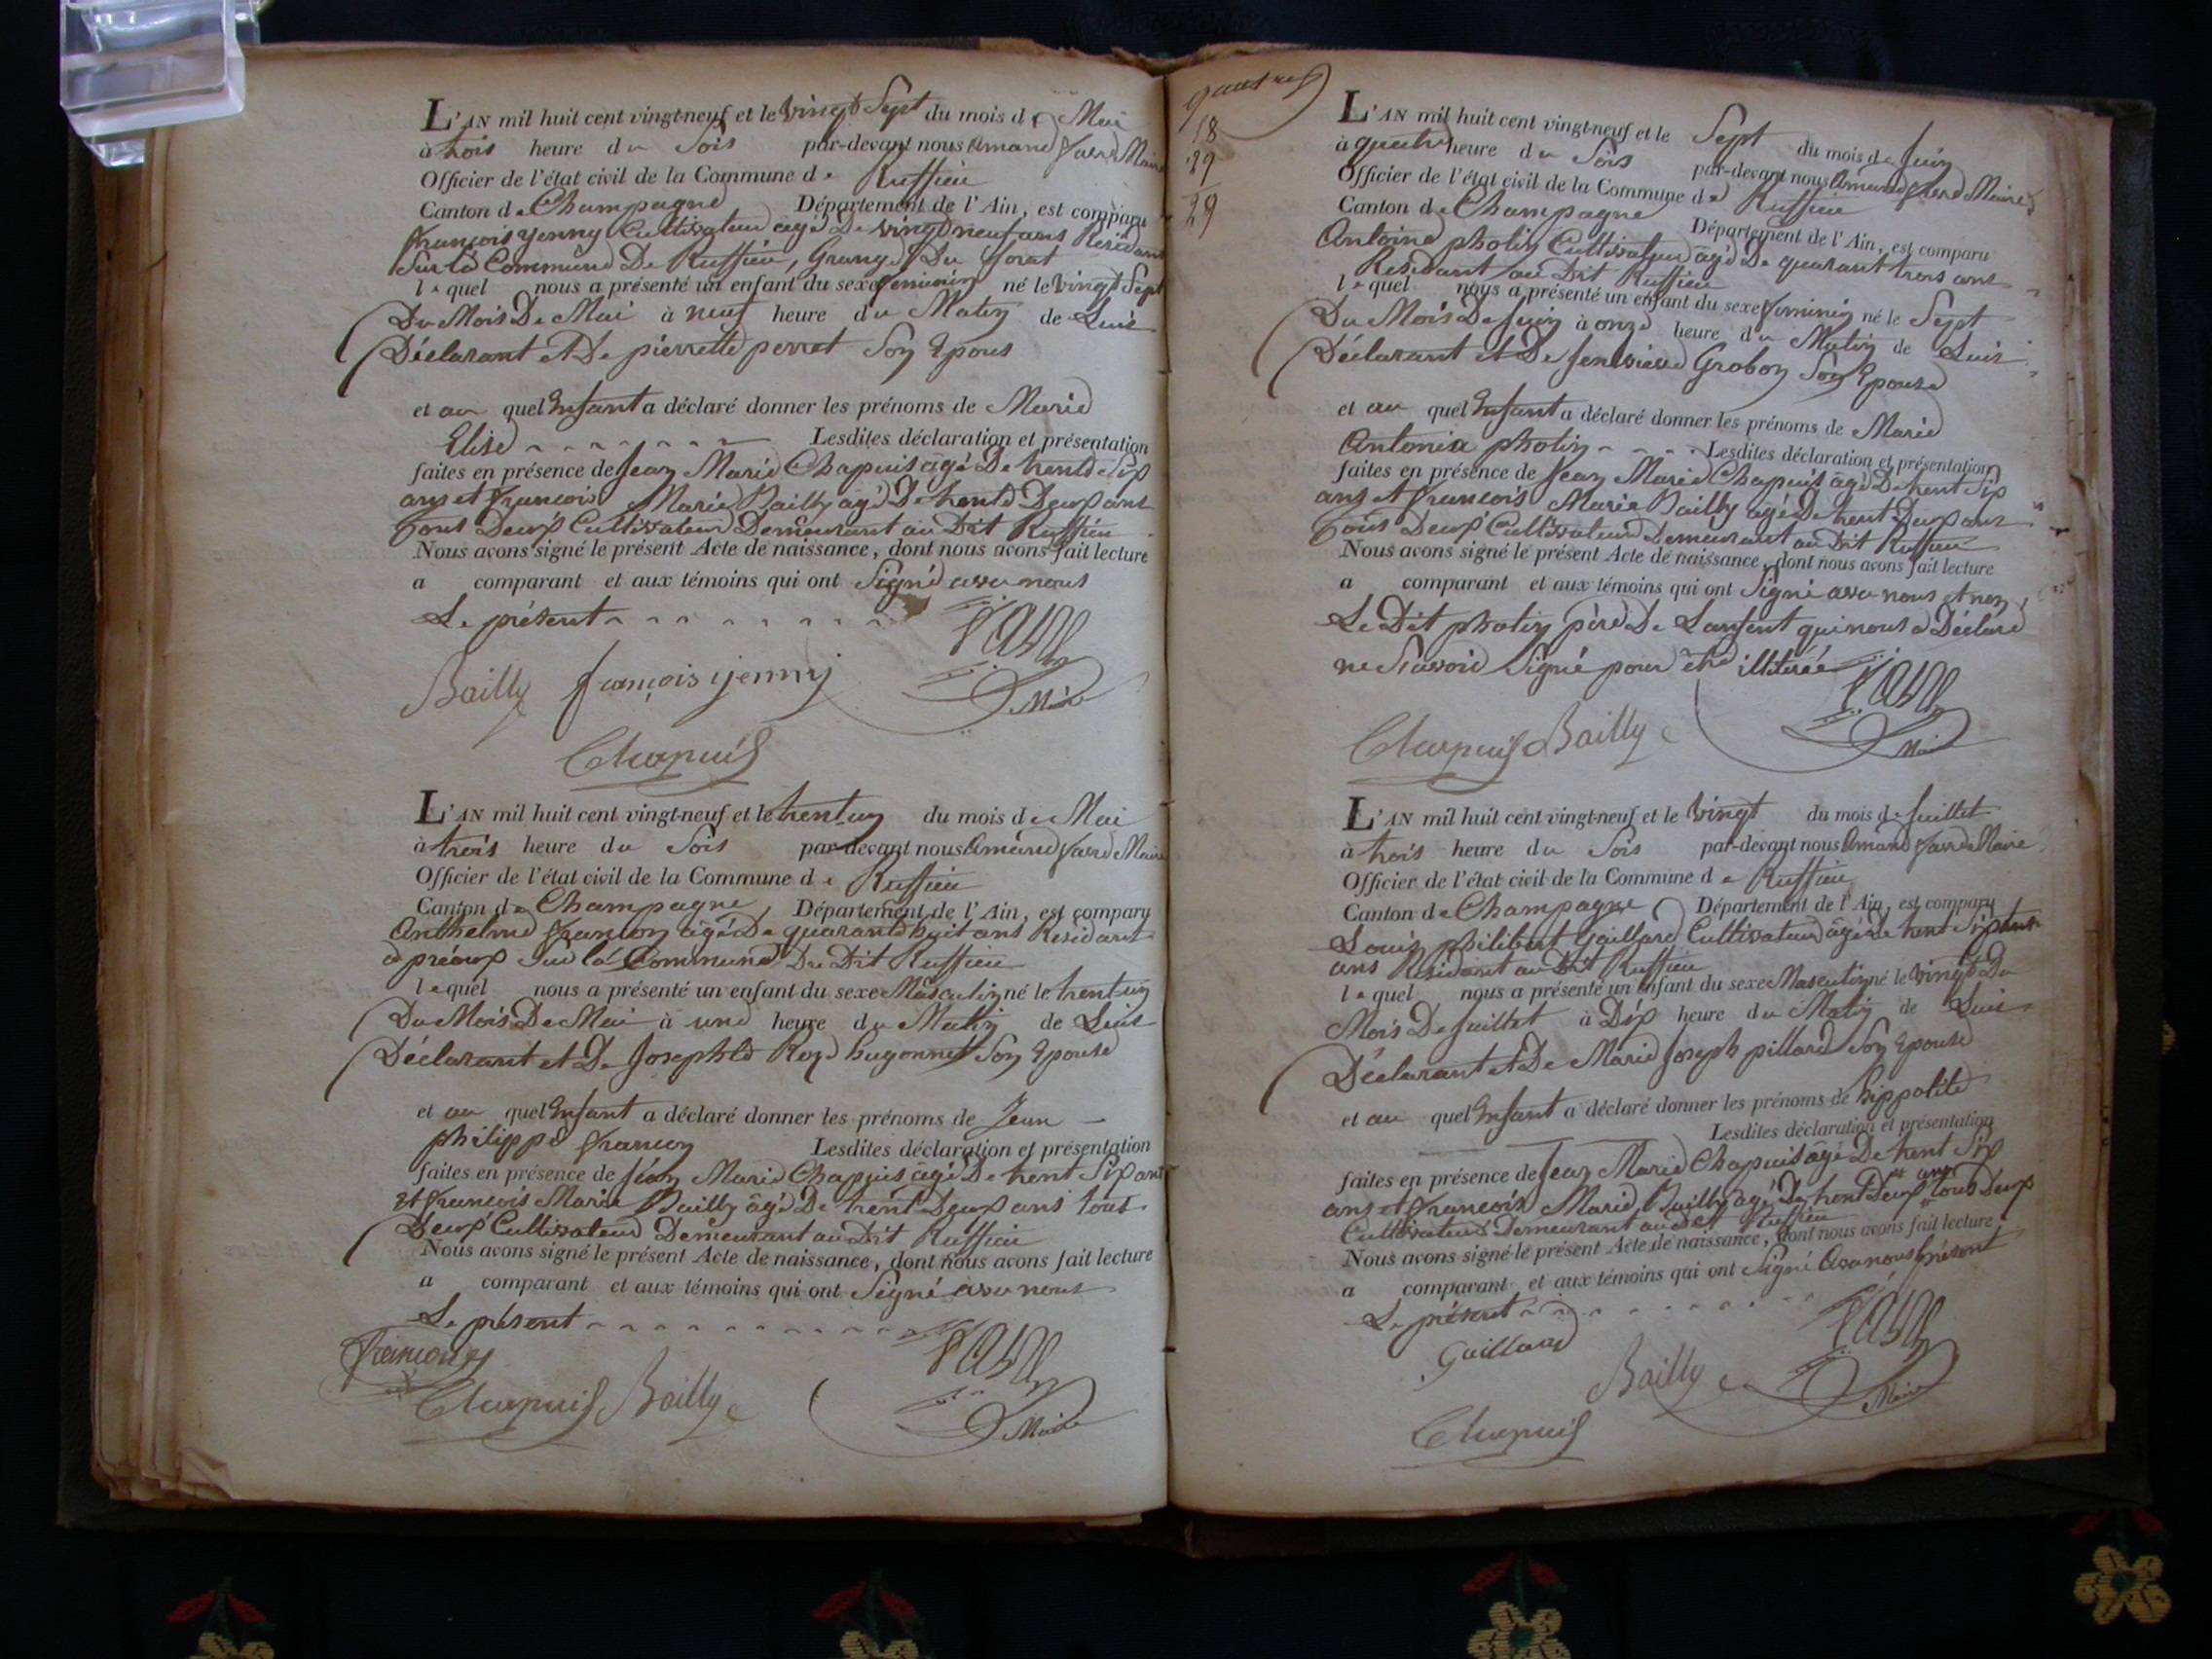 L'AN mil huit cent vingt-neuf et le vingt Sept du mois de Mai
à trois heure du Soir par-devant nous Amand favre Maire
Officier de l'état civil de la Commune de Ruffieu
Canton de Champagne Département de l'Ain, est comparu
françois yenny Cultivateur âgé De vingt neuf ans Résidant
Sur la Commune De Ruffieu, Grange Du forat
lequel nous a présenté un enfant du sexe feminin né le vingt Sept
Du Mois De Mai à neuf heure du Matin de Luis
Déclarant et De pierrette perret Son Epous
et au quel Enfant a déclaré donner les prénoms de Marie
Elise Lesdites déclaration et présentation
faites en présence de Jean Marie Chapuis âgé De trente Six
ans et françois Marie Bailly âgé De trente Deux ans
tous Deux Cultivateur Demeurant au Dit Ruffieu
Nous avons signé le présent Acte de naissance, dont nous avons fait lecture
a comparant et aux témoins qui ont Signé avec nous
Le présent
Bailly françois yenny favre Maire
Chapuis
L'AN mil huit cent vingt-neuf et le trent-un du mois de Mai
à trois heure du Soir par-devant nous Amand favre Maire
Officier de l'état civil de la Commune de Ruffieu
Canton de Champagne, Département de l'Ain, est comparu
Anthelme francon âgé De quarante huit ans Résidant
à préoux Sur la Commune Du Dit Ruffieu
lequel nous a présenté un enfant du sexe Masculin né le trent-un
Du Mois De Mai à une heure du Matin de Luis
Déclarant et De Josephte Roze hugonnet Son Epouse
et au quel Enfant a déclaré donner les prénoms de Jean
philippe francon Lesdites déclaration et présentation
faites en présence de Jean Marie Chapuis âgé De trent Six ans
et françois Marie Bailly âgé De trent Deux ans tous
Deux Cultivateur Demeurant au Dit Ruffieu
Nous avons signé le présent Acte de naissance, dont nous avons fait lecture
a comparant et aux témoins qui ont Signé avec nous
Le présent
Francon favre
Chapuis Bailly Maire
18
29
29
L'AN mil huit cent vingt-neuf et le Sept du mois de Juin
à quatre heure du Soir par-devant nous Amand favre Maire
Officier de l'état civil de la Commune de Ruffieu
Canton de Champagne Département de l'Ain, est comparu
Antoine photin Cultivateur âgé De quarant trois ans
Résidant au Dit Ruffieu
lequel nous a présenté un enfant du sexe feminin né le Sept
Du Mois De Juin à onze heure du Matin de Luis
Déclarant et De Jenevieve Grobon Son Epouse
et au quel Enfant a déclaré donner les prénoms de Marie
Antonia photin Lesdites déclaration et présentation
faites en présence de Jean Marie Chapuis âgé De trent Six
ans et françois Marie Bailly âgé De trent Deux ans
tous Deux Cultivateur Demeurant au Dit Ruffieu
Nous avons signé le présent Acte de naissance, dont nous avons fait lecture
a comparant et aux témoins qui ont Signé avec nous et non
Le Dit photin père De Lanfent qui nous a Déclaré
ne Scavoir Signé pour être illiterée
favre
Chapuis Bailly Maire
L'AN mil huit cent vingt-neuf et le vingt du mois de Juillet
à trois heure du Soir par-devant nous Amand favre Maire
Officier de l'état civil de la Commune de Ruffieu
Canton de Champagne Département de l'Ain, est comparu
Louis philibert Gaillard Cultivateur âgé De trent
ans Résidant au Dit Ruffieu
lequel nous a présenté un enfant du sexe Masculin né le vingt Du
Mois De Juillet à Dix heure du Matin de Luis
Déclarant et De Marie Joseph pillard Son Epouse
et au quel Enfant a déclaré donner les prénoms de hippolite
Lesdites déclaration et présentation
faites en présence de Jean Marie Chapuis âgé De trent Six
ans et françois Marie Bailly âgé De trent Deux ans tous Deux
Cultivateur Demeurant au Dit Ruffieu
Nous avons signé le présent Acte de naissance, dont nous avons fait lecture
a comparant et aux témoins qui ont Signé Avec nous présent
Le présent
Gaillard favre
Bailly Maire
Chapuis